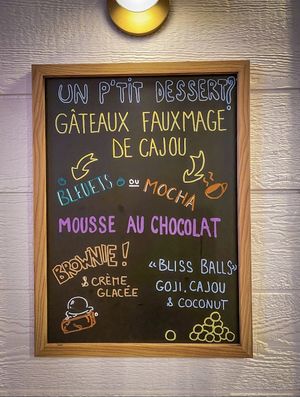 UN P'TIT DESSERT?
GÂTEAUX FAUXMAGE
DE CAJOU
BLEUETS OU MOCHA
MOUSSE AU CHOCOLAT
BROWNIE!
& CRÈME
GLACÉE
«BLISS BALLS»
GOJI, CAJOU
& COCONUT